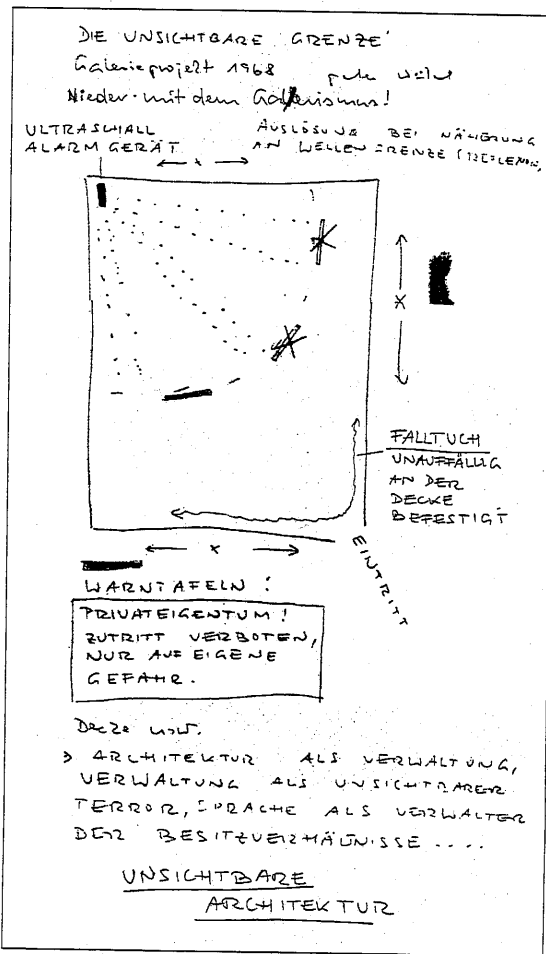 DIE UNSICHTBARE GRENZE
Galerieprojekt 1968
Nieder mit dem Gallerismus!
ULTRASCHALL
ALARMGERÄT
AUSLÖSUNG BEI NÄHERUNG
AN WELLENGRENZE
x
x
FALLTUCH
UNAUFFÄLLIG
AN DER
DECKE
BEFESTIGT
x
EINTRITT
WARNTAFELN:
PRIVATEIGENTUM!
ZUTRITT VERBOTEN,
NUR AUF EIGENE
GEFAHR.
Decke usw.
> ARCHITEKTUR ALS VERWALTUNG,
VERWALTUNG ALS UNSICHTBARER
TERROR, SPRACHE ALS VERWALTER
DER BESITZVERHÄLTNISSE ....
UNSICHTBARE
ARCHITEKTUR